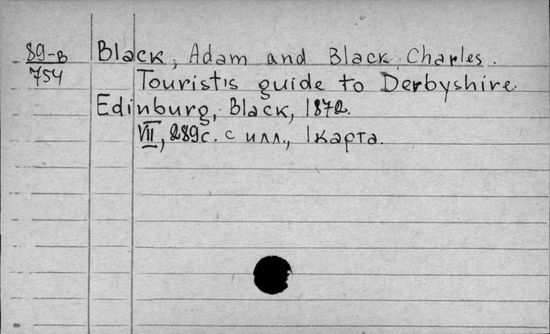 89-в Black, Adam and Black Charles.
754 Tourist's guide to Derbyshire.
Edinburg, Black, 1872.
VII, 289с. с илл., 1 карта.